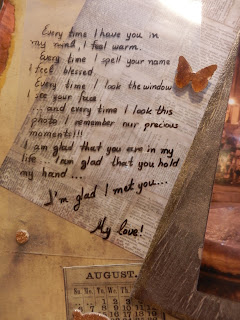 Every time I have you in
my mind, I feel warm.
Every time I spell your name
I feel blessed.
Every time I look the window
I see your face
...and every time I look this
photo I remember our precious
moments!!!
I am glad that you are in my
life... I am glad that you hold
my hand...
I'm glad I met you...
My love!
AUGUST.
Su. Mo. Tu. We. Th.